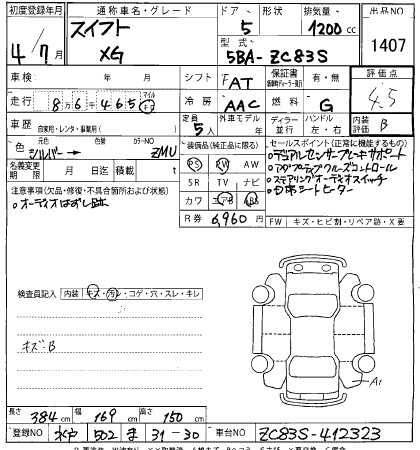 初度登録年月 通称車名・グレード ドア 形状 排気量 出品NO
4/7月 スイフト XG 5 1200cc 1407
型式 5BA-ZC83S
車検 年 月 シフト FAT 保証書 有・無 評価点 4.5
走行 8万6千465 マイル キロ 冷房 AAC 燃料 G
車歴 自家用・レンタ・事業用( ) 定員 5人 外車モデル 年 ディーラー 並行 ハンドル 左・右 内装 B
色 元色 シルバー→ 色替 カラーNO ZMU
名義変更期限 月 日迄 積載 t
装備品(純正品に限る)
PS PW AW
SR TV ナビ
カワ エアB ABS
R券 6,960円
セールスポイント(正常に機能するもの)
○デュアルセンサーブレーキサポート
○アダプティブクルーズコントロール
○ステアリングオーディオスイッチ
○シートヒーター
注意事項(欠品・修復・不具合箇所および状態)
○オーディオはずし跡
FW キズ・ヒビ割・リペア跡・X要
検査員記入 内装 キズ・汚レ・コゲ・穴・スレ・キレ
キズ・B
A1
長さ 384cm 幅 169cm 高さ 150cm
登録NO 水戸 502 ま 31-30 車台NO ZC83S-412323